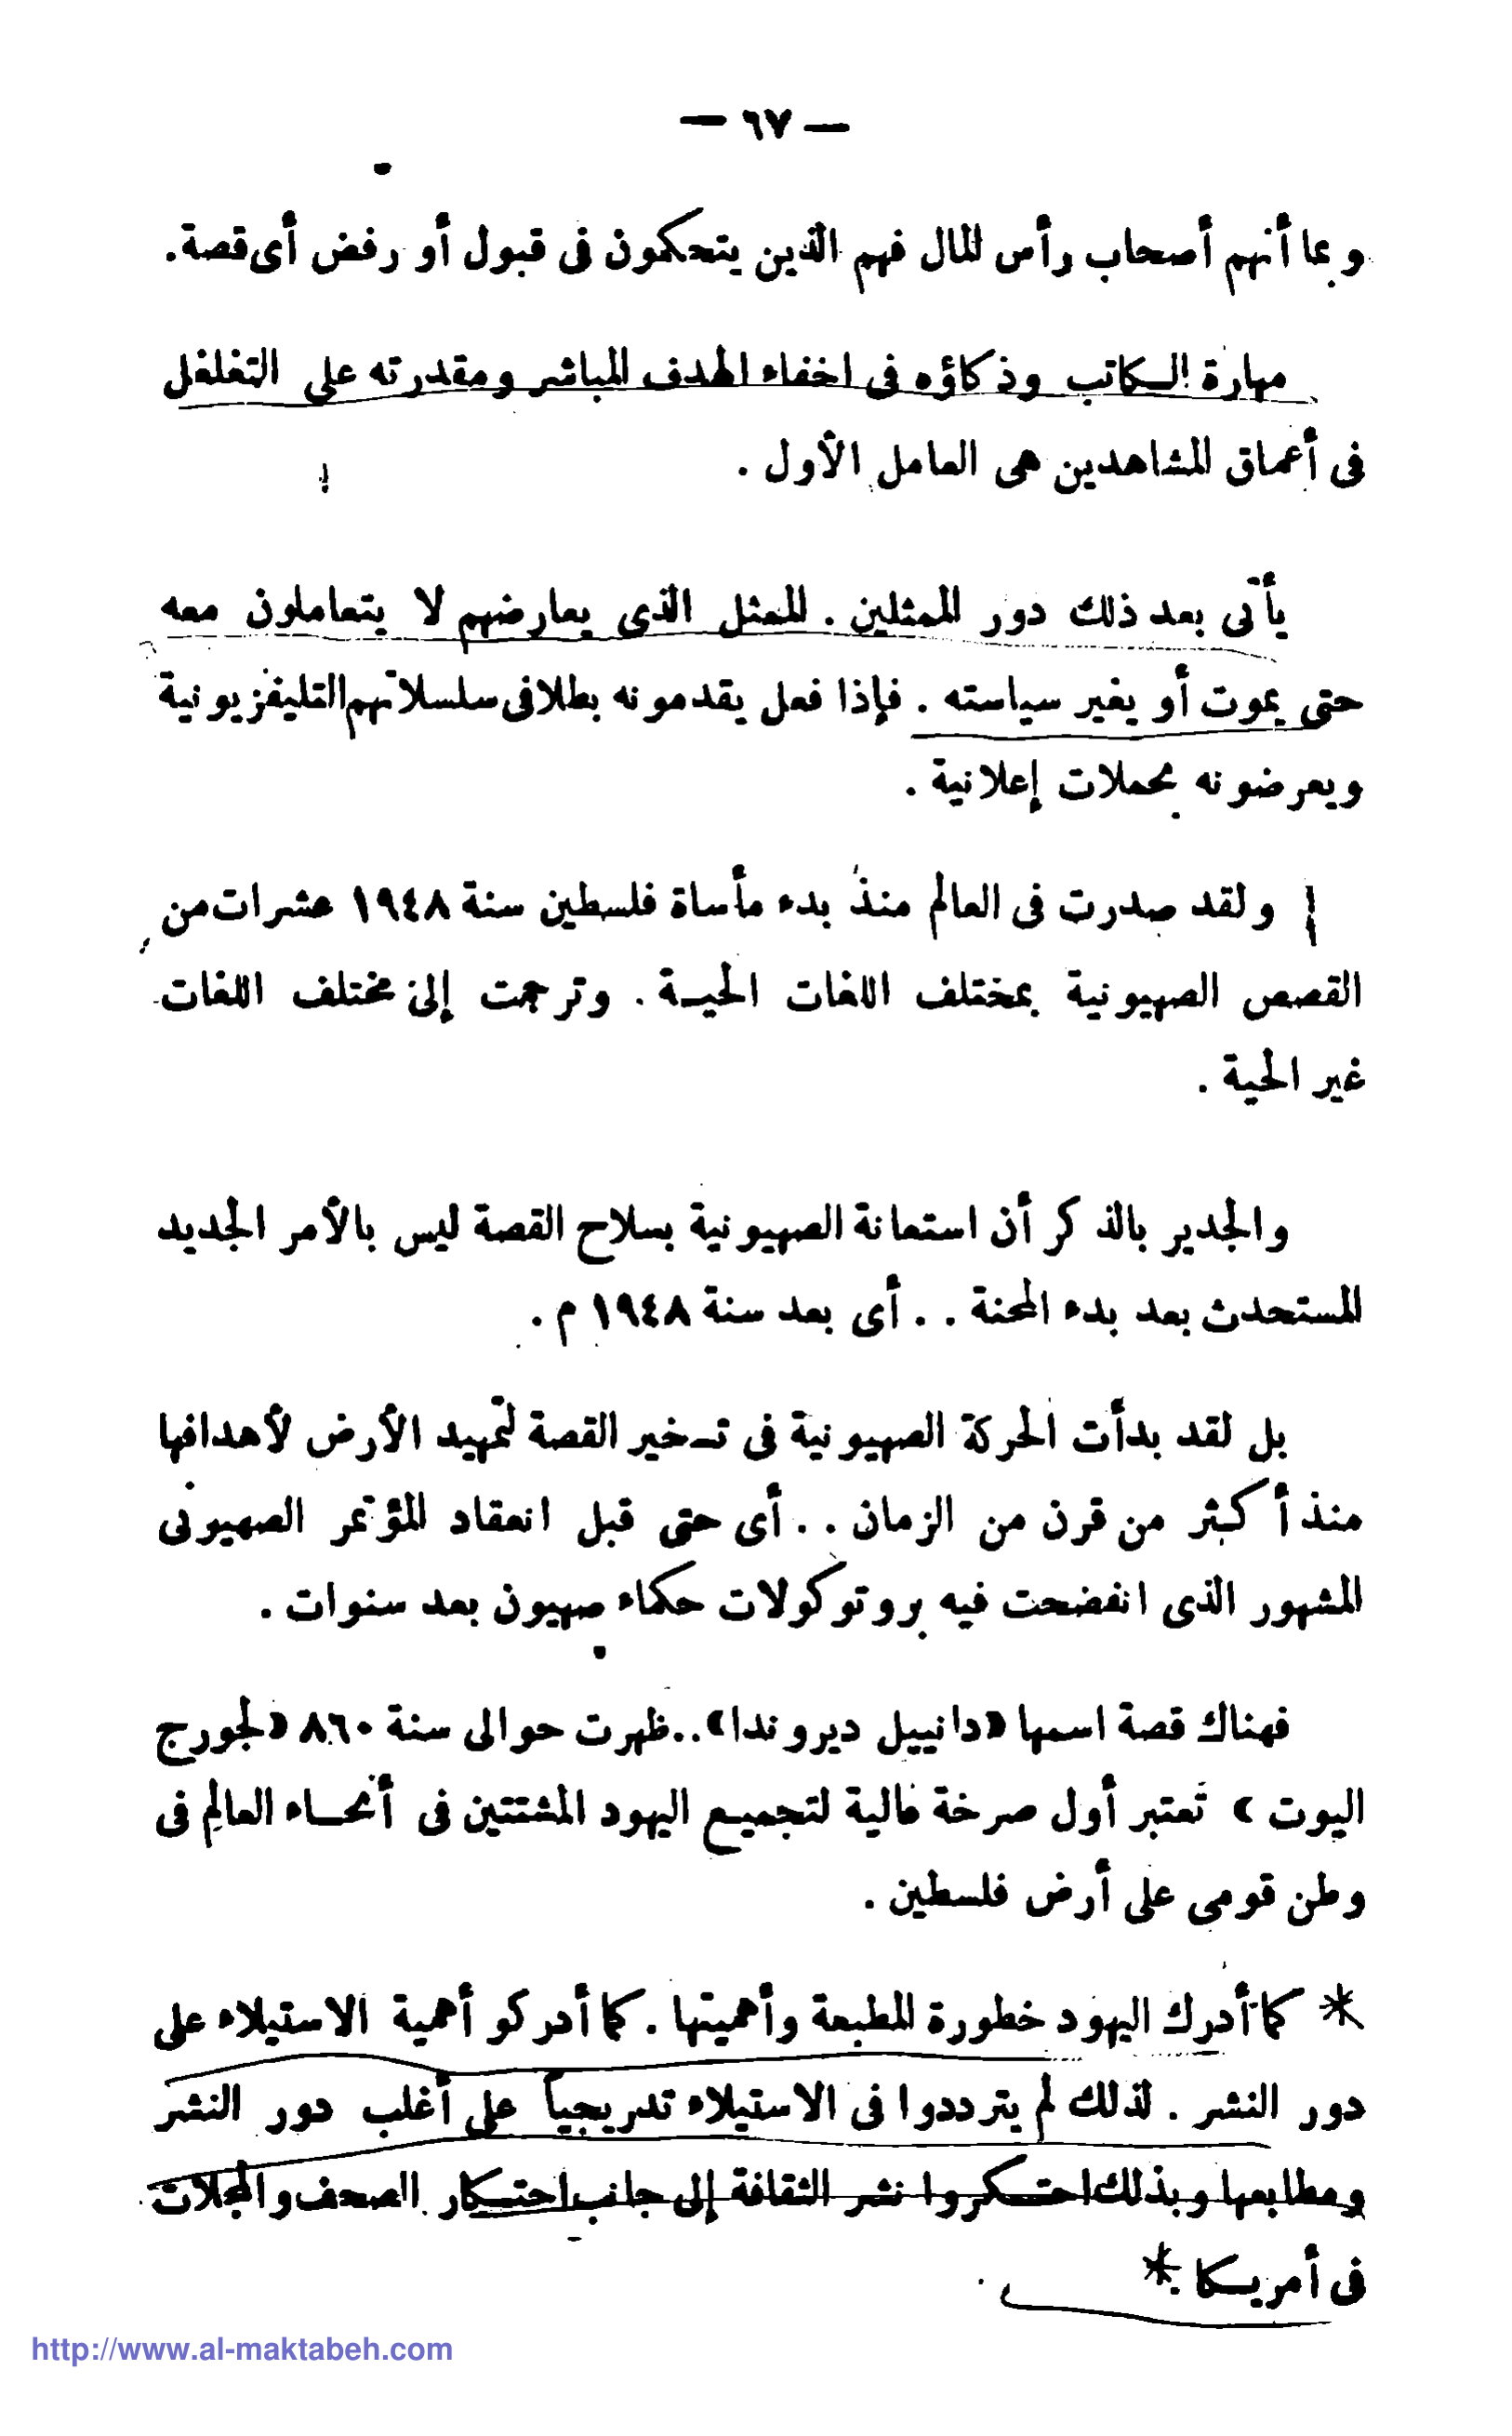 — ٦٧ —
وبما أنهم أصحاب رأس المال فهم الذين يتحكمون فى قبول أو رفض أى قصة.
مهارة الكاتب وذكاؤه فى اخفاء الهدف المباشر ومقدرته على التغلغل
فى أعماق المشاهدين هى العامل الأول .
يأتى بعد ذلك دور الممثلين . الممثل الذى يعارضهم لا يتعاملون معه
حتى يموت أو يغير سياسته . فإذا فعل يقدمونه بطلا فى سلسلاتهم التليفزيونية
ويعرضونه بحملات إعلانية .
ولقد صدرت فى العالم منذ بدء مأساة فلسطين سنة ١٩٤٨ عشرات من
القصص الصهيونية بمختلف اللغات الحيـة . وترجمت إلى مختلف اللغات
غير الحية .
والجدير بالذكر أن استعانة الصهيونية بسلاح القصة ليس بالأمر الجديد
المستحدث بعد بدء المحنة . . أى بعد سنة ١٩٤٨ م .
بل لقد بدأت الحركة الصهيونية فى تسخير القصة لتمهيد الأرض لأهدافها
منذ أكثر من قرن من الزمان . . أى حتى قبل انعقاد المؤتمر الصهيونى
المشهور الذى انفضحت فيه بروتوكولات حكماء صهيون بعد سنوات .
فهناك قصة اسمها «دانييل ديروندا»..ظهرت حوالى سنة ٨٦٠ «لجورج
اليوت » تعتبر أول صرخة عالية لتجميع اليهود المشتتين فى أنحـاء العالم فى
وطن قومى على أرض فلسطين .
* كما أدرك اليهود خطورة المطبعة وأهميتها . كما أدركو أهمية الاستيلاء على
دور النشر . لذلك لم يترددوا فى الاستيلاء تدريجياً على أغلب دور النشر
ومطابعها وبذلك احتكروا نشر الثقافة إلى جانب احتكار الصحف والمجلات
فى أمريكا . *
http://www.al-maktabeh.com